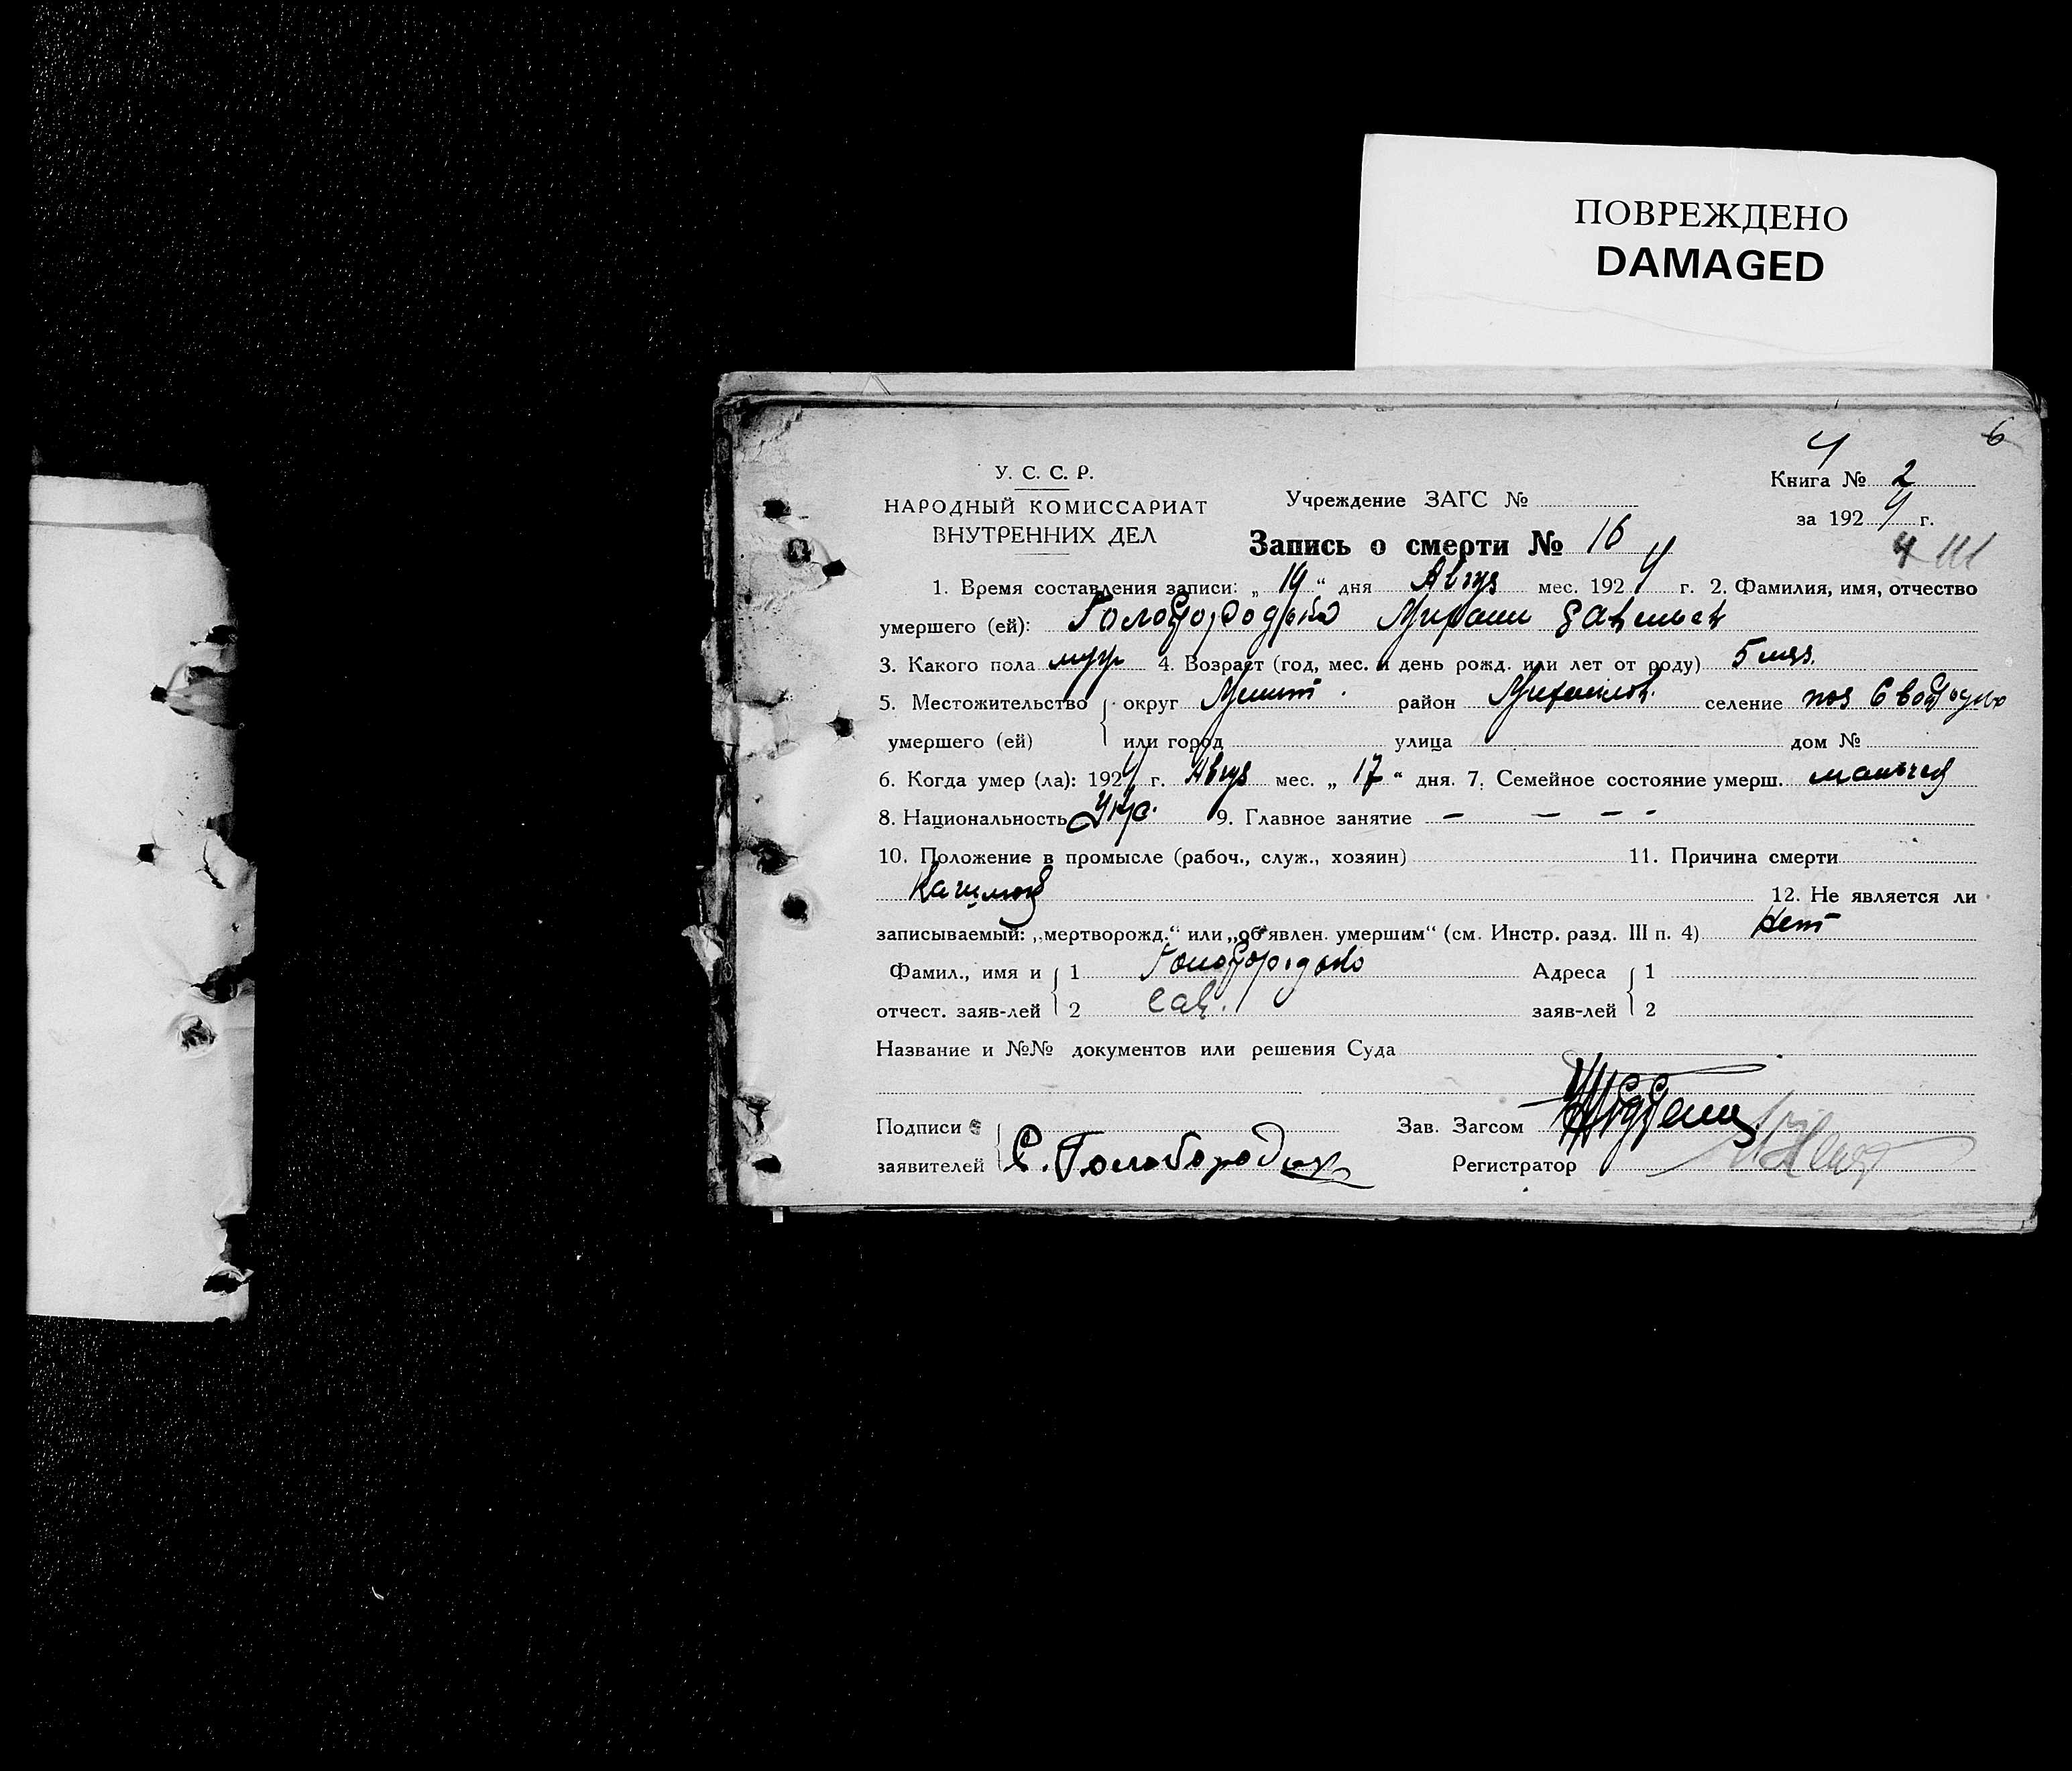 ПОВРЕЖДЕНО
DAMAGED
6
4
У. С. С. Р.
НАРОДНЫЙ КОМИССАРИАТ
ВНУТРЕННИХ ДЕЛ
Учреждение ЗАГС №
Книга № 2
за 1924 г.
Запись о смерти № 16
4 III
1. Время составления записи: „19“ дня Авгус мес. 1924 г. 2. Фамилия, имя, отчество
умершего (ей): Голобородько
3. Какого пола муж 4. Возраст (год, мес. и день рожд. или лет от роду) 5 мес.
5. Местожительство округ район Михайлов. селение пос Свободную
умершего (ей) или город улица дом №
6. Когда умер (ла): 1924 г. Авгус мес. „17“ дня. 7. Семейное состояние умерш.
8. Национальность Укр. 9. Главное занятие — — — -
10. Положение в промысле (рабоч., служ., хозяин) 11. Причина смерти
12. Не является ли
записываемый: „мертворожд.“ или „об'явлен. умершим“ (см. Инстр. разд. III п. 4) Нет
Фамил., имя и 1 Голобородько Адреса 1
отчест. заяв-лей 2 Сав. заяв-лей 2
Название и №№ документов или решения Суда
Подписи Зав. Загсом
заявителей С. Голобородько Регистратор